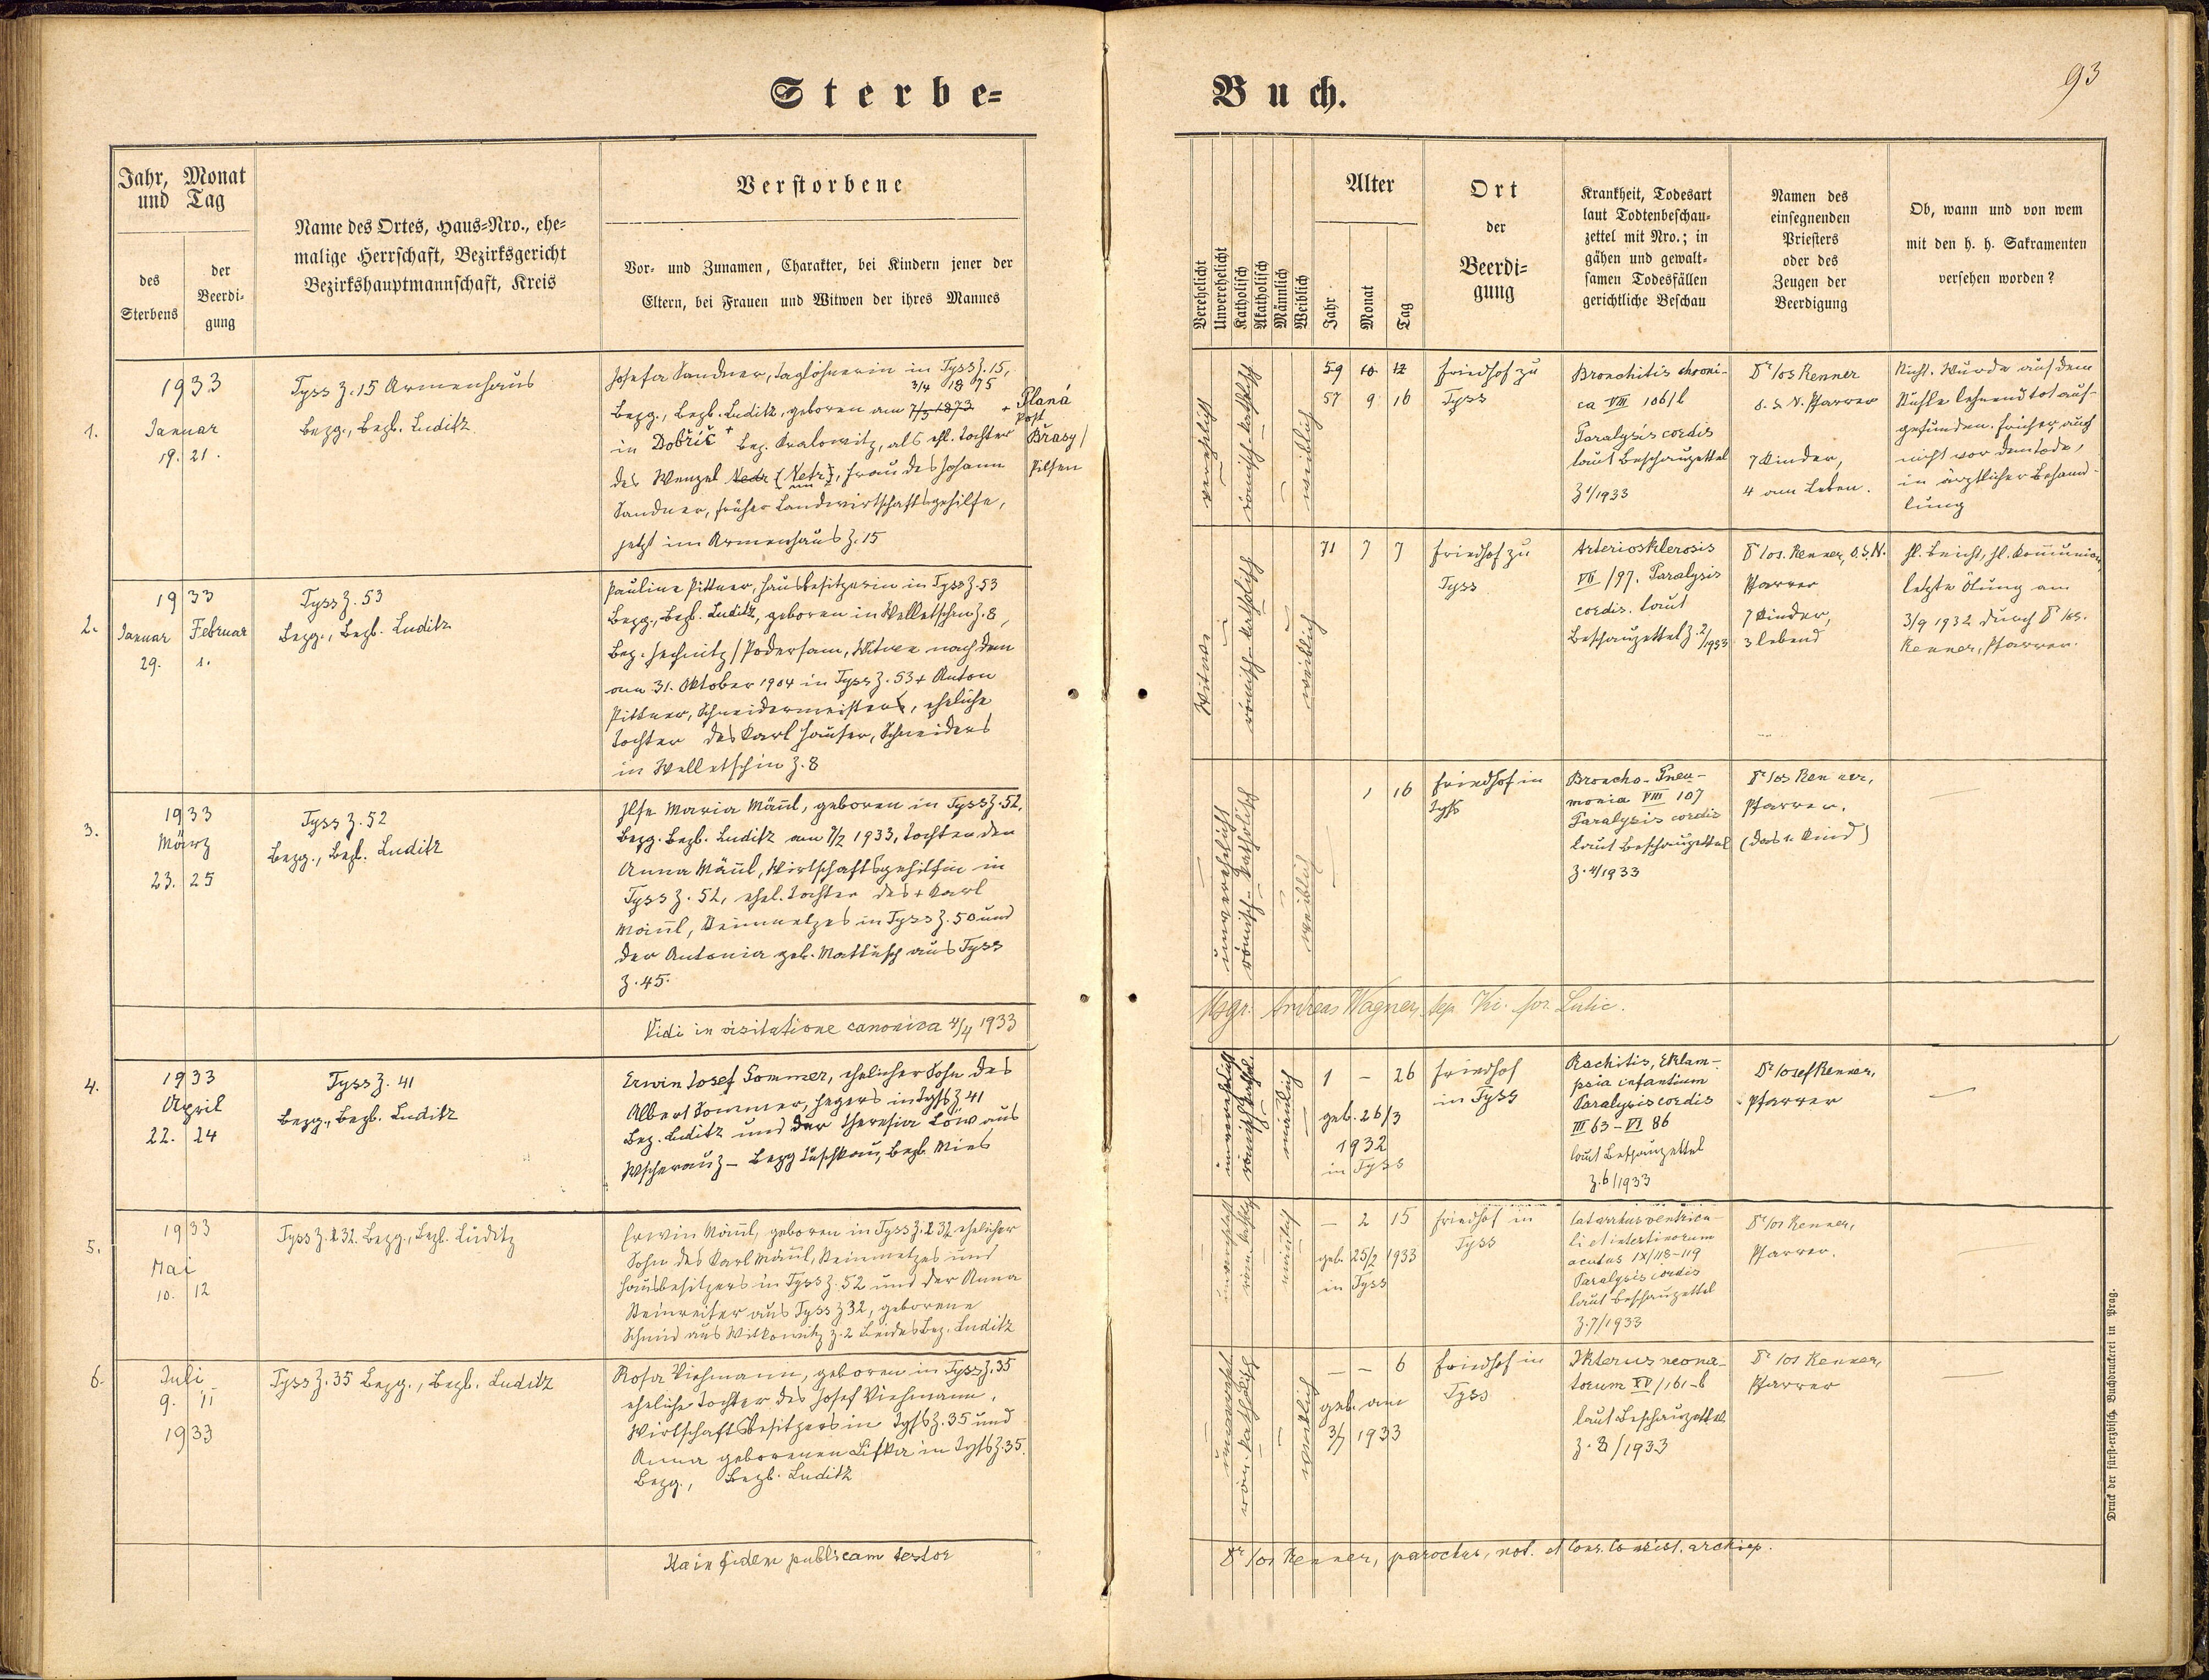 Sterbe=
Buch.
93
Jahr, Monat
und Tag
des
Sterbens
der
Beerdi-
gung
Name des Ortes, Haus=Nro., ehe=
malige Herrschaft, Bezirksgericht
Bezirkshauptmannschaft, Kreis
Verstorbene
Vor- und Zunamen, Charakter, bei Kindern jener der
Eltern, bei Frauen und Witwen der ihres Mannes
Verehelicht
Unverehelicht
Katholisch
Akatholisch
Männlich
Weiblich
Alter
Jahr
Monat
Tag
Ort
der
Beerdi=
gung
Krankheit, Todesart
laut Todtenbeschau=
zettel mit Nro.; in
gähen und gewalt=
samen Todesfällen
gerichtliche Beschau
Namen des
einsegnenden
Priesters
oder des
Zeugen der
Beerdigung
Ob, wann und von wem
mit den h. h. Sakramenten
versehen worden?
1.
1933
Januar
19. 21.
Tyss Z. 15 Armenhaus
Bezg., Bezh. Luditz
Josefa Sandner, Taglöhnerin in Tyss Z. 15,
3/4 1875
Bezg., Bezh. Luditz, geboren am 7/3 1873
in Dobřič + Bez. Kralowitz, als ehl. Tochter
+ Planá
Post
Břasy /
Pilsen
des Wenzel Vedr (Netr), Frau des Johann
Sandner, früher Landwirtschaftsgehilfe,
jetzt im Armenhaus Z. 15
verehelicht
römisch-katholisch
weiblich
59 10 12
57 9 16
Friedhof zu
Tyss
Bronchitis chroni-
ca VIII 106/b
Paralysis cordis
laut Beschauzettel
Z 1/1933
Dr Jos Renner
b. s. N. Pfarrer
7 Kinder,
4 am Leben.
Nicht. Wurde auf dem
Stuhle lehnend tot auf-
gefunden. Früher, auch
nicht vor dem Tode,
in ärztlicher Behand-
lung
2.
1933
Januar Februar
29. 1.
Tyss Z. 53
Bezg., Bezh. Luditz
Pauline Pittner, Hausbesitzerin in Tyss Z. 53
Bezg., Bezh. Luditz, geboren in Welletschin Z. 8,
Bez. Jechnitz / Podersam, Witwe nach dem
am 31. Oktober 1904 in Tyss Z. 53 + Anton
Pittner, Schneidermeisters, eheliche
Tochter des Karl Hauser, Schneiders
in Welletschin Z. 8
Witwe
römisch-katholisch
weiblich
71 7 7
Friedhof zu
Tyss
Arteriosklerosis
VII /97. Paralysis
cordis. laut
Beschauzettel Z. 2/1933
Dr Jos. Renner, b. s. N.
Pfarrer
7 Kinder,
3 lebend
hl. Beicht, hl. Kommunion,
letzte Ölung am
3/9 1932 durch Dr Jos.
Renner, Pfarrer.
3.
1933
März
23. 25
Tyss Z. 52
Bezg., Bezh. Luditz
Ilse Maria Männl, geboren in Tyss Z. 52,
Bezg. Bezh. Luditz am 7/2 1933, Tochter der
Anna Männl, Wirtschaftsgehilfin in
Tyss Z. 52, ehel. Tochter des + Karl
Männl, Steinmetzes in Tyss Z. 50 und
der Antonia geb. Mattusch aus Tyss
Z. 45.
unverehelicht
römisch-katholisch
weiblich
1 16
Friedhof in
Tyss
Broncho-Pneu-
monia VIII 107
Paralysis cordis
laut Beschauzettel
Z. 4/1933
Dr Jos Renner,
Pfarrer.
(das 1. Kind)
Vidi in visitatione canonica 4/4 1933
Msgr. Andreas Wagner,
4.
1933
April
22. 24
Tyss Z. 41
Bezg., Bezh. Luditz
Erwin Josef Sommer, ehelicher Sohn des
Albert Sommer, Hegers in Tyss Z 41
Bez. Luditz und der Theresia Löw aus
Wscherau Z – Bezg Tuschkau, Bezh. Mies
unverehelicht
römisch-kathol.
männlich
1 – 26
geb. 26/3
1932
in Tyss
Friedhof
in Tyss
Rachitis, Eklam-
psia infantium
Paralysis cordis
III 63 – VI 86
laut Beschauzettel
Z. 6/1933
Dr Josef Renner,
Pfarrer
5.
1933
Mai
10. 12
Tyss Z. 32. Bezg., Bezh. Luditz
Erwin Männl, geboren in Tyss Z. 32 ehelicher
Sohn des Karl Männl, Steinmetzes und
Hausbesitzers in Tyss Z. 52 und der Anna
Steinreiter aus Tyss Z 32, geborene
Schmid aus Witkowitz Z. 2 beides Bez. Luditz
männlich
– 2 15
geb. 25/2 1933
in Tyss
Friedhof in
Tyss
Catarrhus ventricu-
li et intestinorum
acutus IX/118–119
Paralysis cordis
laut Beschauzettel
Z. 7/1933
Dr Jos Renner,
Pfarrer.
6.
Juli
9. 11
1933
Tyss Z. 35 Bezg., Bezh. Luditz
Rosa Viehmann, geboren in Tyss Z. 35
eheliche Tochter des Josef Viehmann,
Wirtschaftsbesitzers in Tyss Z. 35 und
Anna geborenen Liska in Tyss Z. 35.
Bezg., Bezh. Luditz
röm. katholisch
weiblich
– – 6
geb. am
3/7 1933
Friedhof in
Tyss
Ikterus neona-
torum XV/161–b
laut Beschauzettel
Z. 8/1933
Dr Jos Renner,
Pfarrer
Ita in fidem publicam testor
Dr Jos Renner, parochus, not. et Cons. Consist. archiep.
Druck der fürst-erzbisch. Buchdruckerei in Prag.